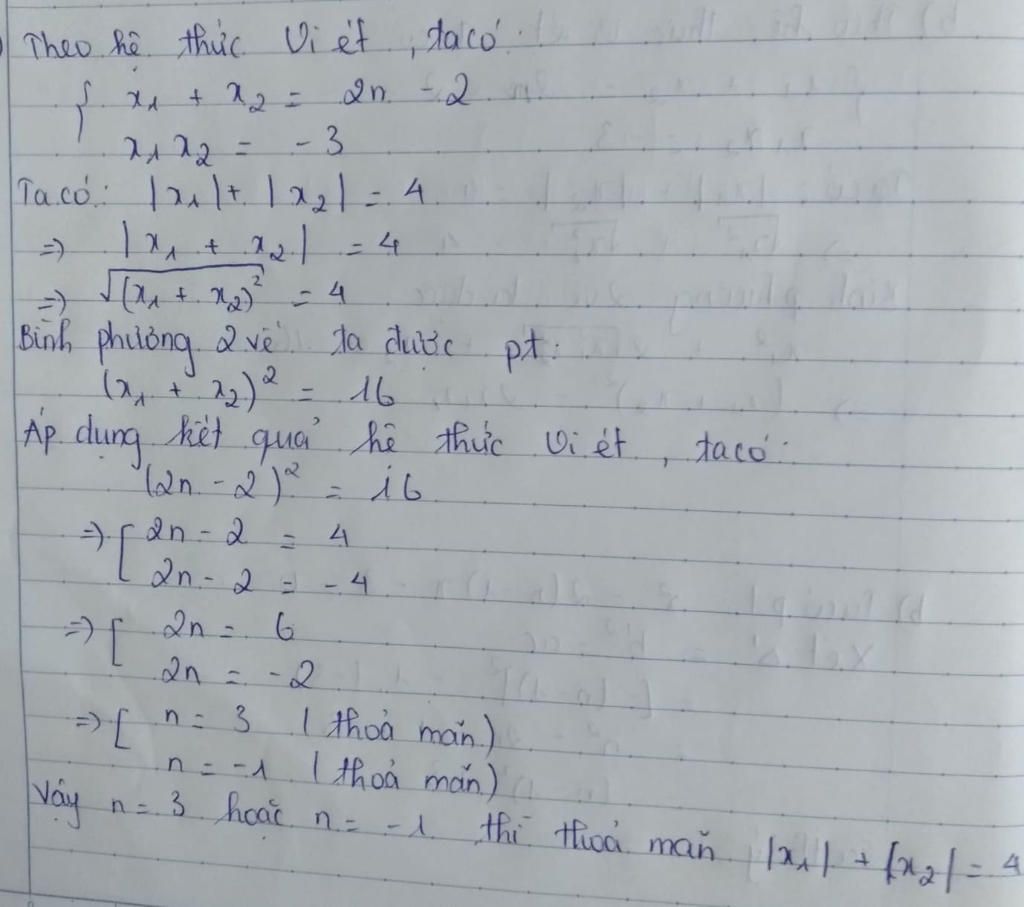 Theo hệ thức Vi ét, ta có:
{ x₁ + x₂ = 2n - 2
x₁ x₂ = - 3
Ta có: |x₁| + |x₂| = 4
=> |x₁ + x₂| = 4
=> √(x₁ + x₂)² = 4
Bình phương 2 vế ta được pt:
(x₁ + x₂)² = 16
Áp dụng kết quả hệ thức Vi ét, ta có:
(2n - 2)² = 16
=> [ 2n - 2 = 4
2n - 2 = - 4
=> [ 2n = 6
2n = - 2
=> [ n = 3 (thoả mãn)
n = -1 (thoả mãn)
Vậy n = 3 hoặc n = - 1 thì thoả mãn |x₁| + |x₂| = 4